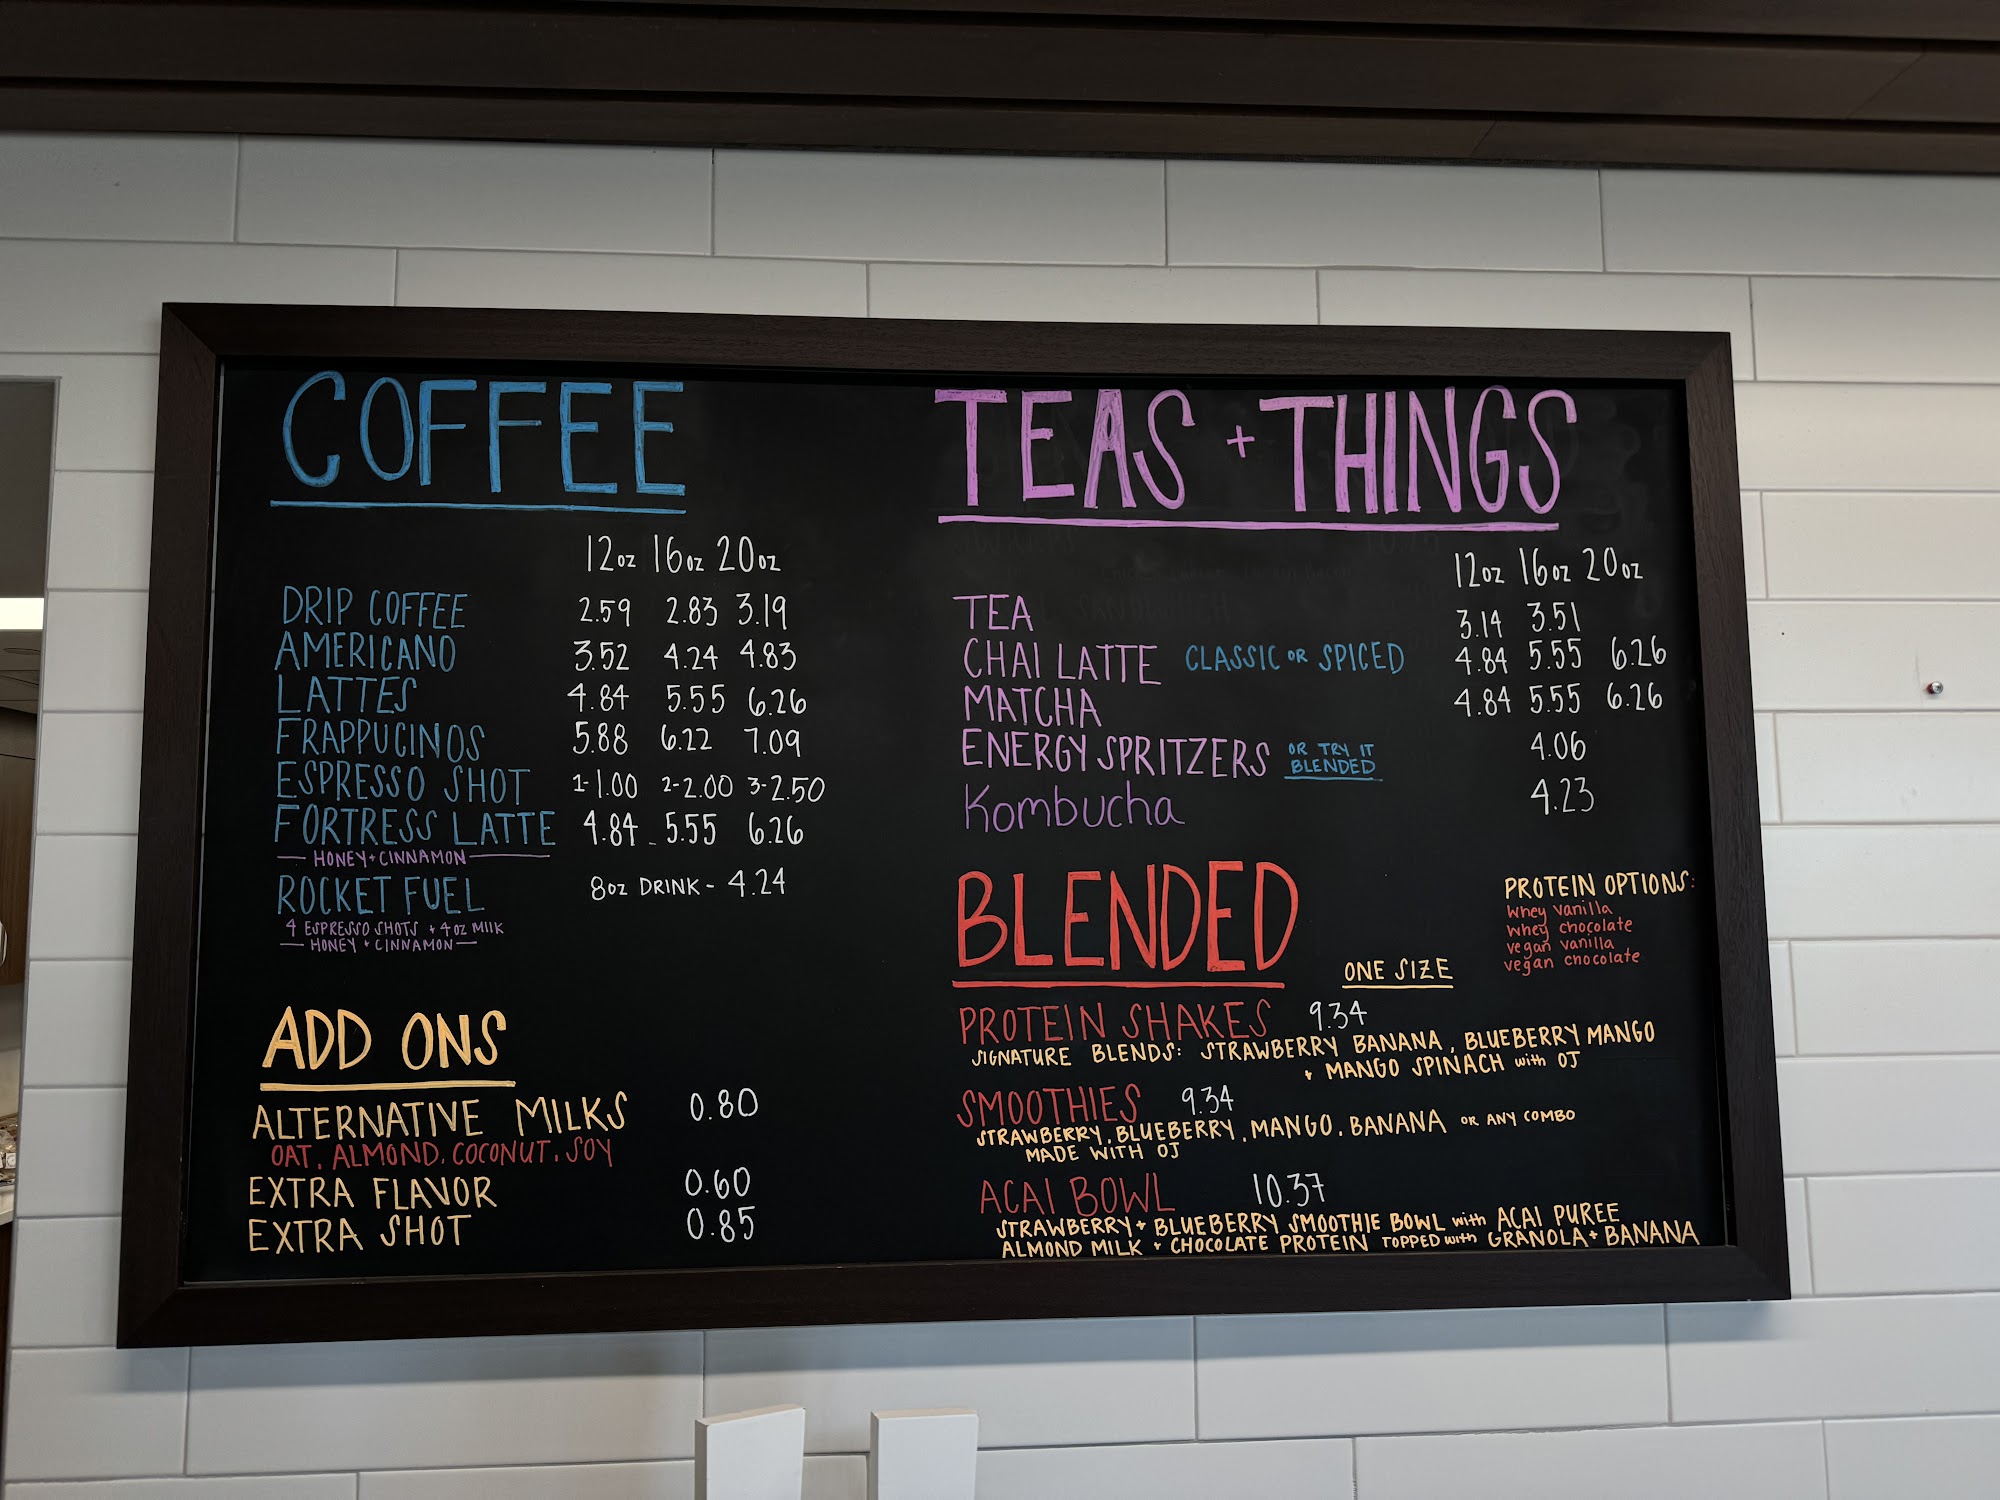 COFFEE
12oz 16oz 20oz
DRIP COFFEE 2.59 2.83 3.19
AMERICANO 3.52 4.24 4.83
LATTES 4.84 5.55 6.26
FRAPPUCINOS 5.88 6.22 7.09
ESPRESSO SHOT 1-1.00 2-2.00 3-2.50
FORTRESS LATTE 4.84 5.55 6.26
HONEY + CINNAMON
ROCKET FUEL 8oz DRINK - 4.24
4 ESPRESSO SHOTS + 4oz MILK
HONEY + CINNAMON
ADD ONS
ALTERNATIVE MILKS 0.80
OAT, ALMOND, COCONUT, SOY
EXTRA FLAVOR 0.60
EXTRA SHOT 0.85
TEAS + THINGS
12oz 16oz 20oz
TEA 3.14 3.51
CHAI LATTE CLASSIC OR SPICED 4.84 5.55 6.26
MATCHA 4.84 5.55 6.26
ENERGY SPRITZERS OR TRY IT 4.06
BLENDED
Kombucha 4.23
BLENDED
ONE SIZE
PROTEIN OPTIONS:
Whey Vanilla
Whey chocolate
vegan vanilla
vegan chocolate
PROTEIN SHAKES 9.34
SIGNATURE BLENDS: STRAWBERRY BANANA, BLUEBERRY MANGO
+ MANGO SPINACH with OJ
SMOOTHIES 9.34
STRAWBERRY, BLUEBERRY, MANGO, BANANA OR ANY COMBO
MADE WITH OJ
ACAI BOWL 10.37
STRAWBERRY + BLUEBERRY SMOOTHIE BOWL with ACAI PUREE
ALMOND MILK + CHOCOLATE PROTEIN TOPPED with GRANOLA + BANANA